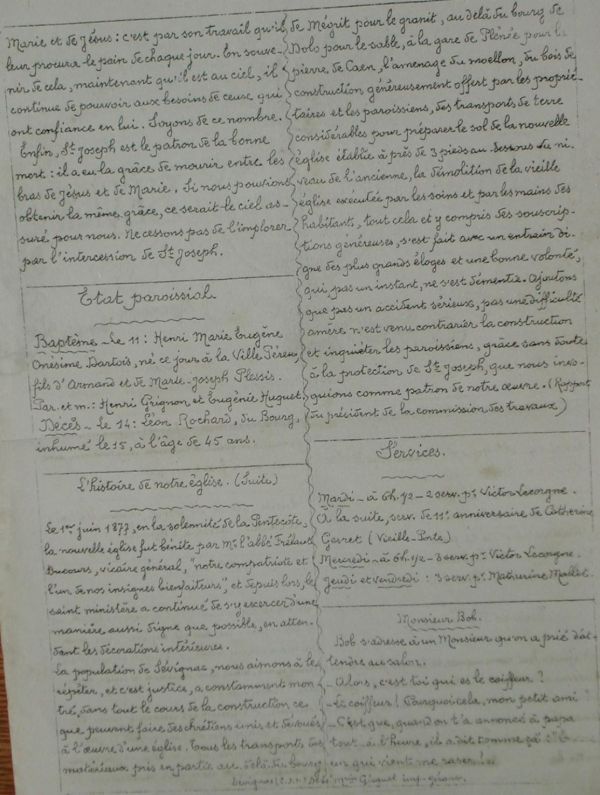 Marie et de Jésus : c'est par son travail qu'il
leur procura le pain de chaque jour. En souve-
nir de cela, maintenant qu'il est au ciel, il
continue de pouvoir aux besoins de ceux qui
ont confiance en lui. Soyons de ce nombre.
Enfin, St Joseph est le patron de la bonne
mort : il a eu la grâce de mourir entre les
bras de Jésus et de Marie. Si nous pouvions
obtenir la même grâce, ce serait le ciel as-
suré pour nous. Ne cessons pas de l'implorer
par l'intercession de St Joseph.
Etat paroissial
Baptême - Le 11 : Henri Marie Eugène
Onésime Dartois, né ce jour à la Ville
fils d'Armand et de Marie-Joseph Plessis.
Par. et m. : Henri Grignon et Eugénie Huguet.
Décès - Le 14 : Léon Rochard, du Bourg,
inhumé le 15, à l'âge de 45 ans.
L'histoire de notre église. (Suite)
Le 1er juin 1877, en la solennité de la Pentecôte,
la nouvelle église fut bénite par Mr l'abbé Frélaut
Ducours, vicaire général, "notre compatriote et
l'un de nos insignes bienfaiteurs", et depuis lors, le
saint ministère a continué de s'y exercer d'une
manière aussi digne que possible, en atten-
dant les décorations intérieures.
La population de Sévignac, nous aimons à le
répéter, et c'est justice, a constamment mon
tré, dans tout le cours de la construction, ce
que peuvent faire des chrétiens unis et dévoués
à l'œuvre d'une église. Tous les transports des
matériaux pris en partie au delà du bourg
de Mégrit pour le granit, au delà du bourg de
Dolo pour le sable, à la gare de Plénée pour la
pierre de Caen, l'amenage du moellon, du bois de
construction généreusement offert par les proprié-
taires et les paroissiens, des transports de terre
considérables pour préparer le sol de la nouvelle
église établie à près de 3 pieds au dessous du ni-
veau de l'ancienne, la démolition de la vieille
église exécutée par les soins et par les mains des
habitants, tout cela et y compris des souscrip-
tions généreuses, s'est fait avec un entrain di-
gne des plus grands éloges et une bonne volonté,
qui, pas un instant, ne s'est démentie. Ajoutons
que pas un accident sérieux, pas une difficulté
amère n'est venu contrarier la construction
et inquiéter les paroissiens, grâce sans doute
à la protection de St Joseph, que nous invo-
quions comme patron de notre œuvre. (Rapport
du président de la commission des travaux)
Services.
Mardi - à 6h.1/2 - 2 serv. pr Victor Lecorgne.
A la suite, serv. de 11e anniversaire de Catherine
Gerret (Vieille-Porte)
Mercredi - à 6h.1/2 - 3 serv. pr Victor Lecorgne.
Jeudi et vendredi : 3 serv. pr Mathurine Mallet.
Monsieur Bob.
Bob s'adresse à un Monsieur qu'on a prié d'at-
tendre au salon.
- Alors, c'est toi qui es le coiffeur ?
- Le coiffeur ! Pourquoi cela, mon petit ami ?
- C'est que, quand on t'a annoncé à papa
tout à l'heure, il a dit comme ça :
un qui vient me raser !
Sévignac imp-gérant.